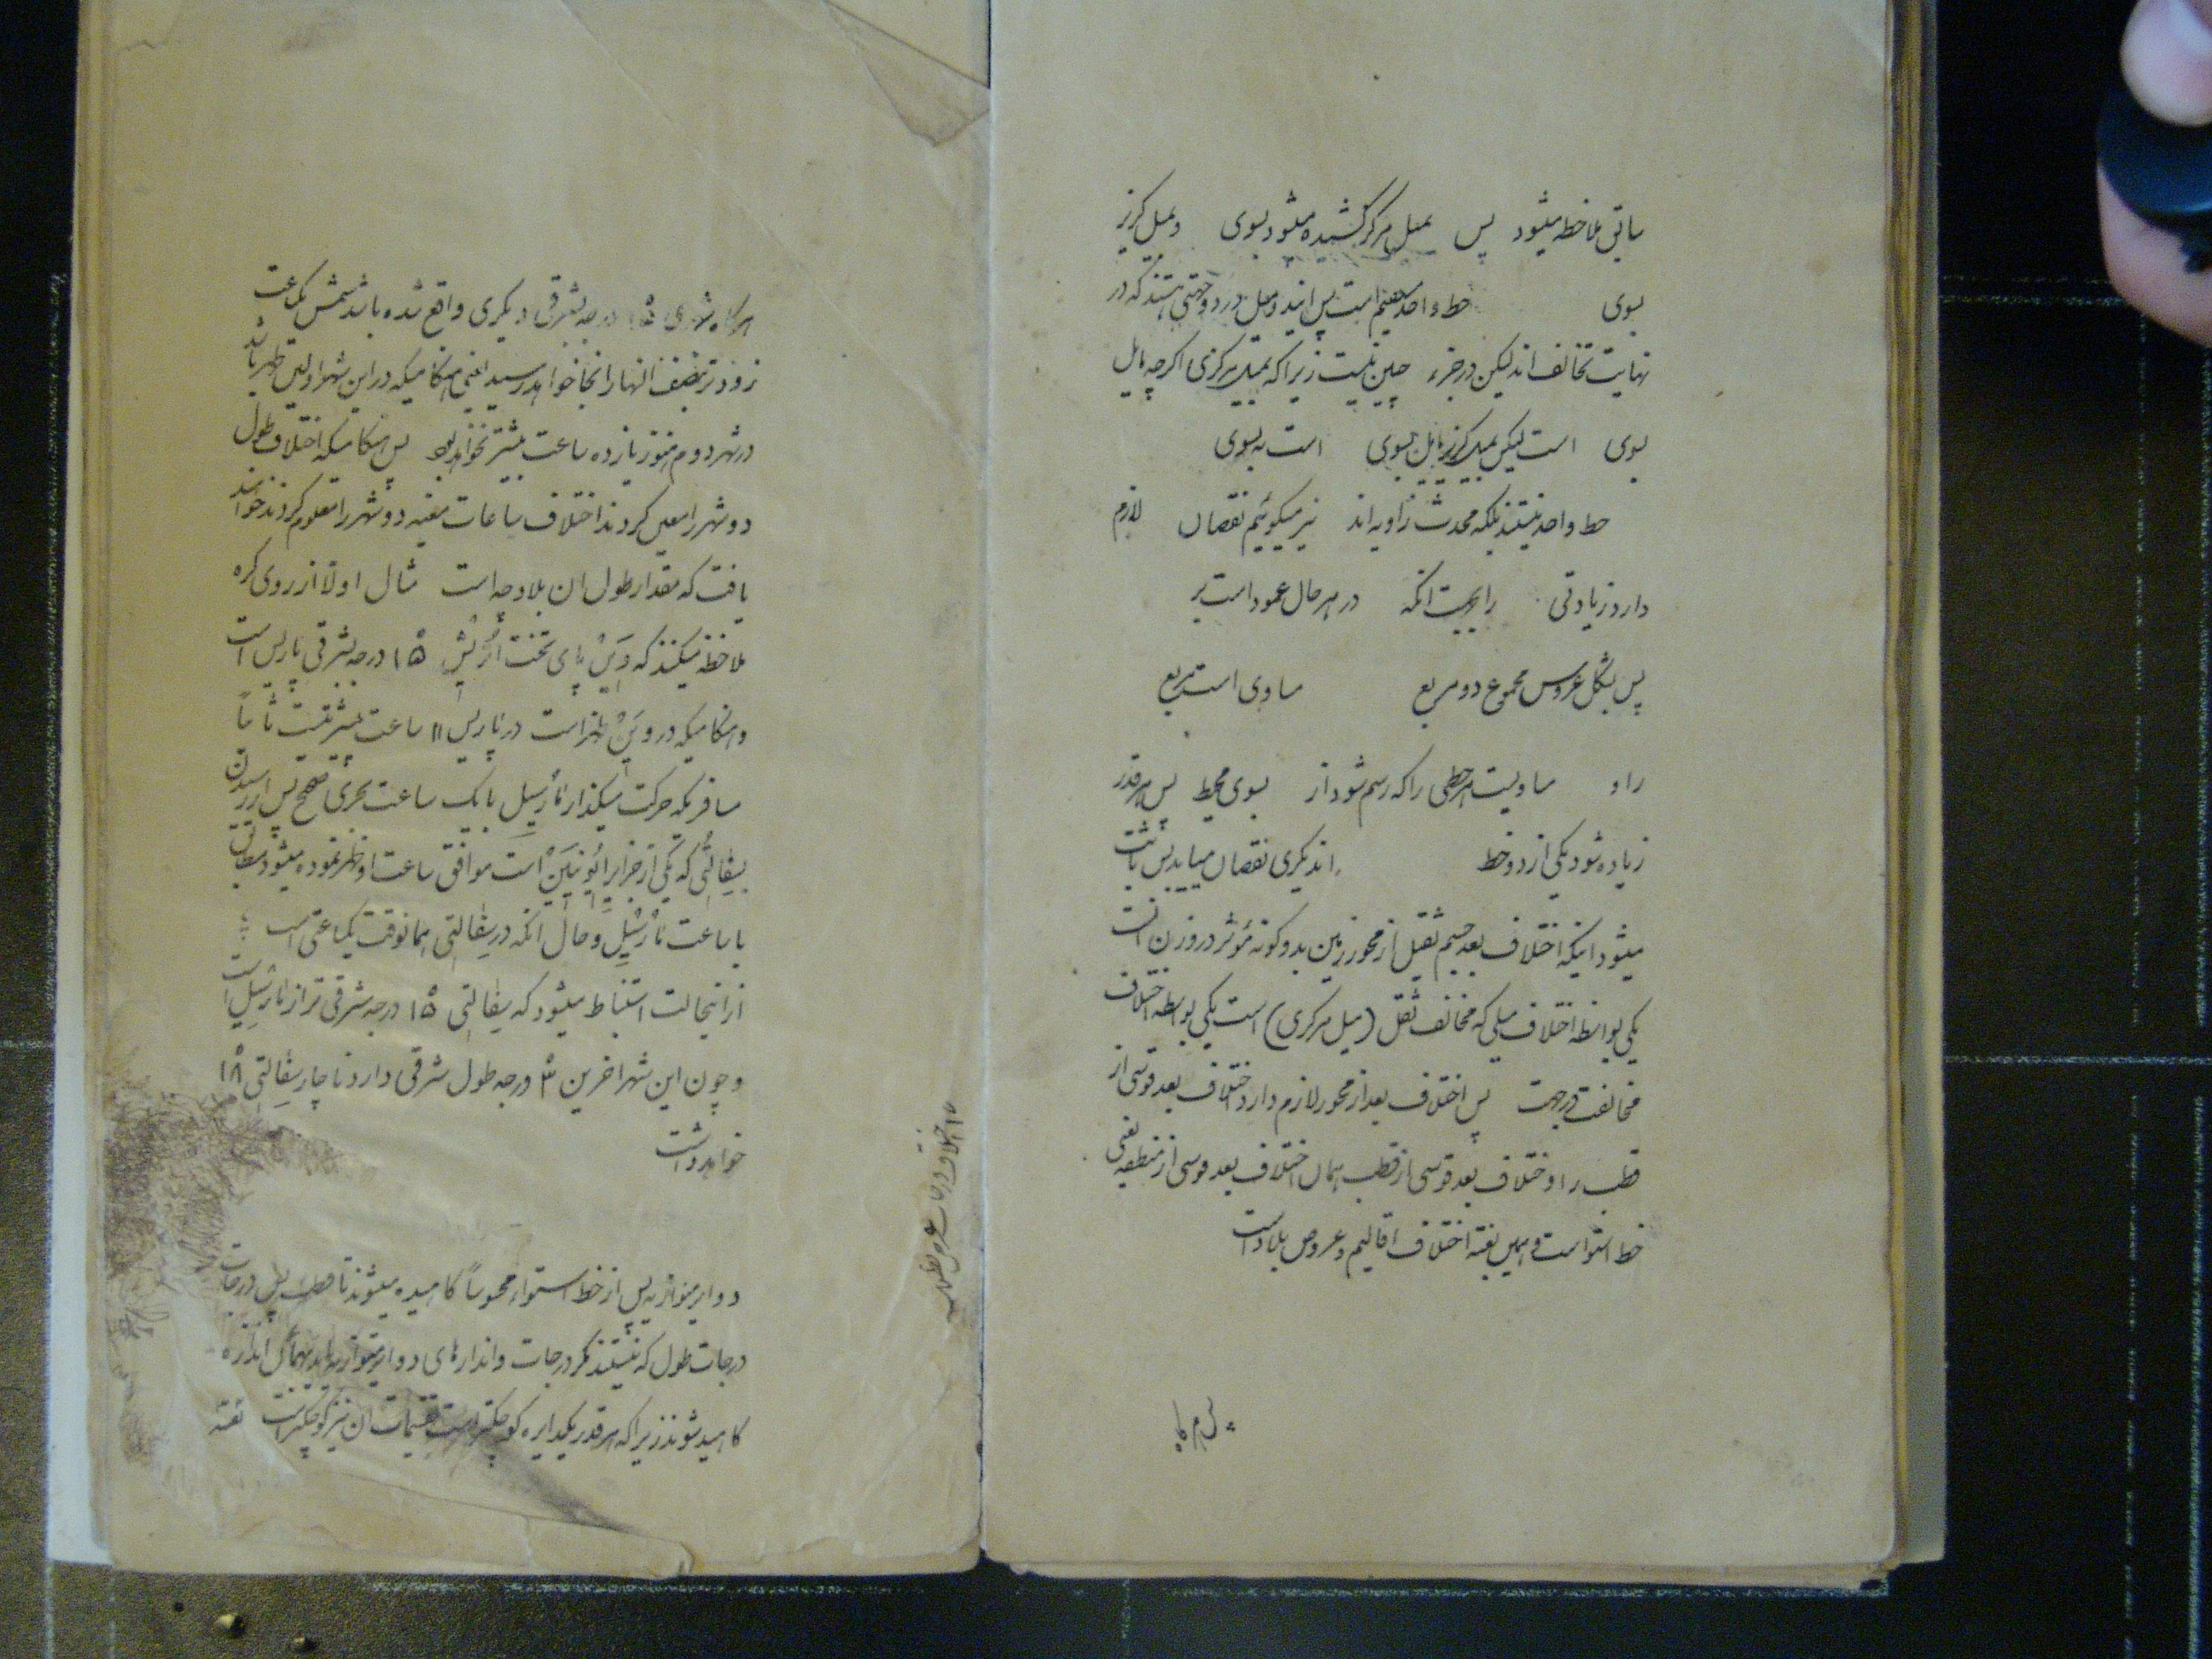 ساتی ملاحظه میشود پس بمیل مرکز کشیده میشود بسوی و بمیل کریز
بسوی خط واحد مستقیم است پس این دو میل در دو جهتی هستند که در
نهایت تخالف اند لیکن در جزء چنین نیست زیرا که بمیل مرکزی اگرچه مایل
بسوی است لیکن بمیل کریز مایل بسوی است نه بسوی
خط واحد نیستند بلکه محدث زاویه اند نیز میگوئیم نقصان لازم
دارد زیادتی را بجهت انکه در هر حال عمود است بر
پس بشکل عروس مجموع دو مربع مساوی است بمربع
را و مساویست هر خطی را که رسم شود از بسوی محیط پس هر قدر
زیاده شود یکی از دو خط از دیگری نقصان میابد پس ثابت
میشود اینکه اختلاف بعد جسم ثقیل از محور زمین بدو گونه مؤثر در وزن است
یکی بواسطه اختلاف میلی که مخالف ثقل (میل مرکزی) است یکی بواسطه اختلاف
مخالفت در جهت پس اختلاف بعد از محور لازم دارد اختلاف بعد قوسی از
قطب را و اختلاف بعد قوسی از قطب همان اختلاف بعد قوسی از منطقه یعنی
خط استوا است و همین بعینه اختلاف اقالیم و عروض بلاد است
هرگاه شهری ۱۵ درجه بشرقی دیگری واقع شده باشد شمس یکساعت
زودتر بنصف النهار انجا خواهد رسید یعنی هنگامیکه در این شهر اولین ظهر باشد
در شهر دوم هنوز یازده ساعت بیشتر نخواهد بود پس هنگامیکه اختلاف طول
دو شهر را معین کردند اختلاف ساعات معینه دو شهر را معلوم کردند خواهند
یافت که مقدار طول ان بلاد چه است مثال اولا از روی کره
ملاحظه میکنند که وین پای تخت اتریش ۱۵ درجه بشرقی پاریس است
و هنگامیکه در وین ظهر است در پاریس ۱۱ ساعت بیشتر نیست ثانیاً
مسافریکه حرکت میکند از مارسیل با یک ساعت بحری صحیح پس از رسیدن
بسفالنی که یکی از جزایر ایونین است موافق ساعت او ظهر نموده میشود مطابق
با ساعت مارسیل و حال انکه در سفالنی همانوقت یکساعتی است
از اینحالت استنباط میشود که سفالنی ۱۵ درجه شرقی تر از مارسیل است
و چون این شهر اخرین ۳ درجه طول شرقی دارد ناچار سفالنی ۱۸
خواهد داشت
دوایر متوازیه پس از خط استوا محسوساً کاهیده میشوند تا قطب پس درجات
درجات طول که نیستند مگر درجات دوایر متوازیه باید بهمان اندازه
کاهیده شوند زیرا که هر قدر یکدایره کوچکتر است تقسیمات ان نیز کوچکتر است